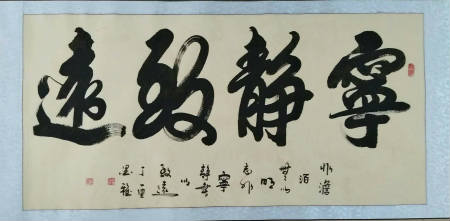 寧靜致遠
非澹
泊
無以
明
志非
寧
靜無
以
致遠
丁酉